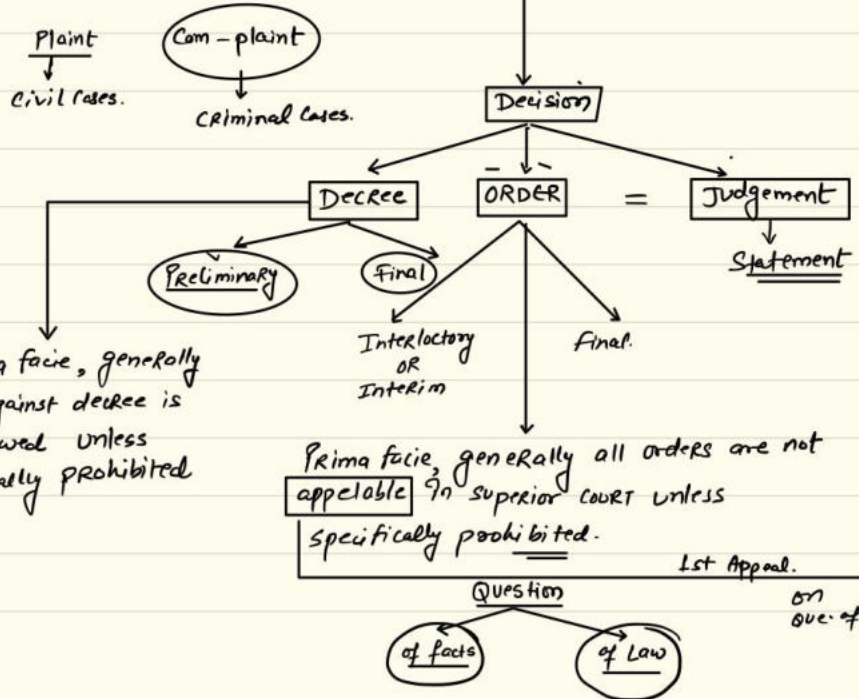 Plaint
Com-plaint
Civil Cases.
Criminal Cases.
Decision
Decree
ORDER
=
Judgement
Preliminary
Final
Statement
Interloctory
OR
Interim
Final.
facie, generally
decree is
unless
prohibited
Prima facie, generally all orders are not
appelable in superior court unless
specifically prohibited.
1st Appeal.
Question
on
Que. of
of facts
of Law